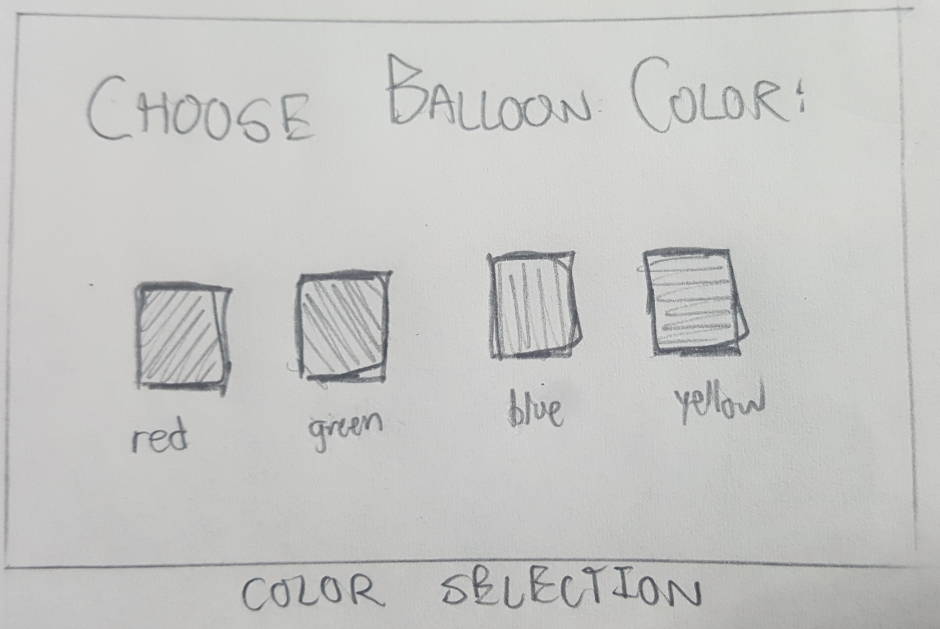 CHOOSE BALLOON COLOR:
red green blue yellow
COLOR SELECTION